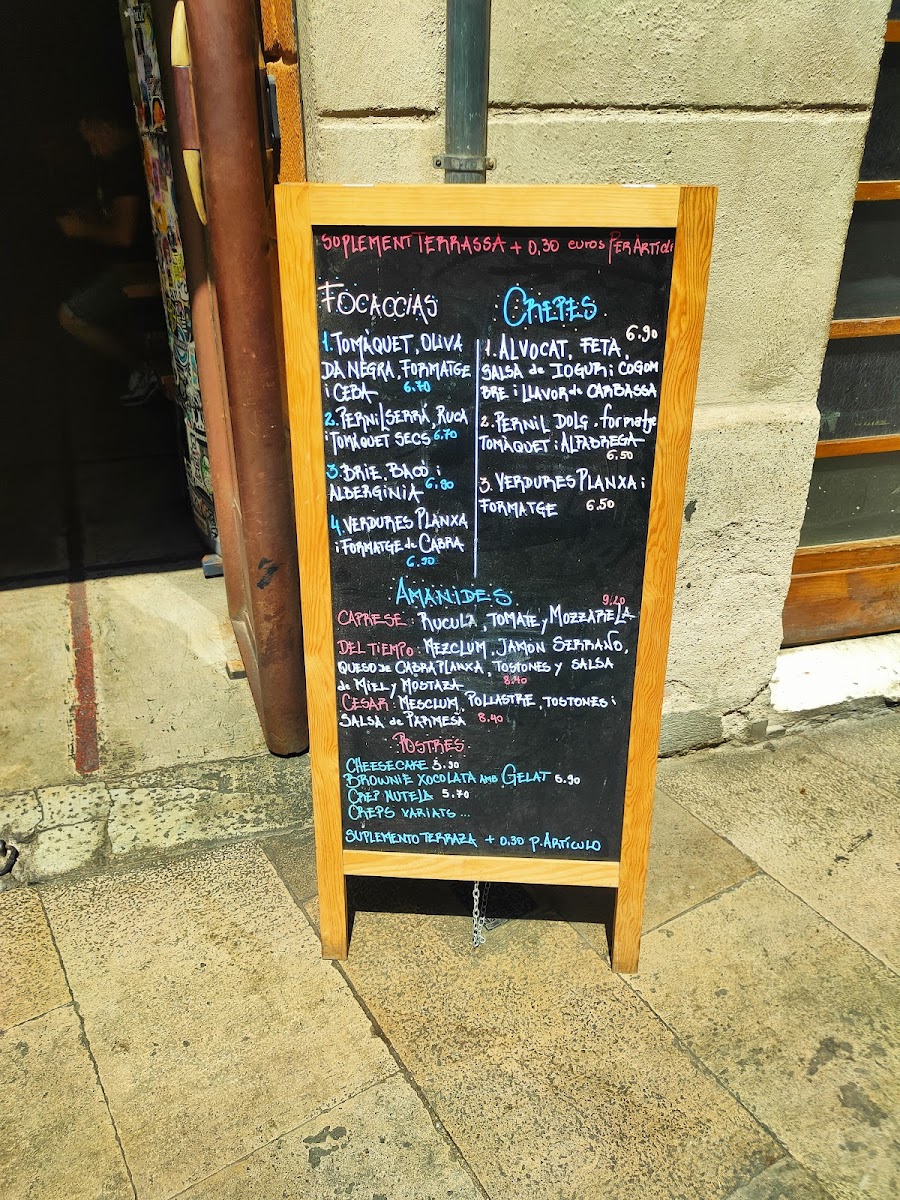 SUPLEMENT TERRASSA + 0,30 euros PER ARTICLE
FOCACCIAS
1. TOMÀQUET, OLIVA
DA NEGRA, FORMATGE
i CEBA 6.70
2. PERNIL SERRÀ, RUCA
i TOMÀQUET SECS 6.70
3. BRIE, BACÓ i
ALBERGINIA 6.80
4. VERDURES PLANXA
i FORMATGE de CABRA
6.90
CREPES
6.90
1. ALVOCAT, FETA,
SALSA de IOGUR i COGOM
BRE i LLAVOR de CARBASSA
2. PERNIL DOLÇ, formatge
TOMÀQUET i ALFÀBREGA
6.50
3. VERDURES PLANXA i
FORMATGE 6.50
AMANIDES
CAPRESE: RUCULA, TOMATE y MOZZARELA
DEL TIEMPO: MEZCLUM, JAMON SERRANO,
QUESO de CABRA PLANXA, TOSTONES y SALSA
de MIEL y MOSTAZA 8.40
CESAR: MESCLUM, POLLASTRE, TOSTONES i
SALSA de PARMESÀ 8.40
POSTRES
CHEESECAKE 5.90
BROWNIE XOCOLATA AMB GELAT 6.90
CREP NUTELA 5.70
CREPS VARIATS...
SUPLEMENTO TERRAZA + 0.30 p. ARTICULO